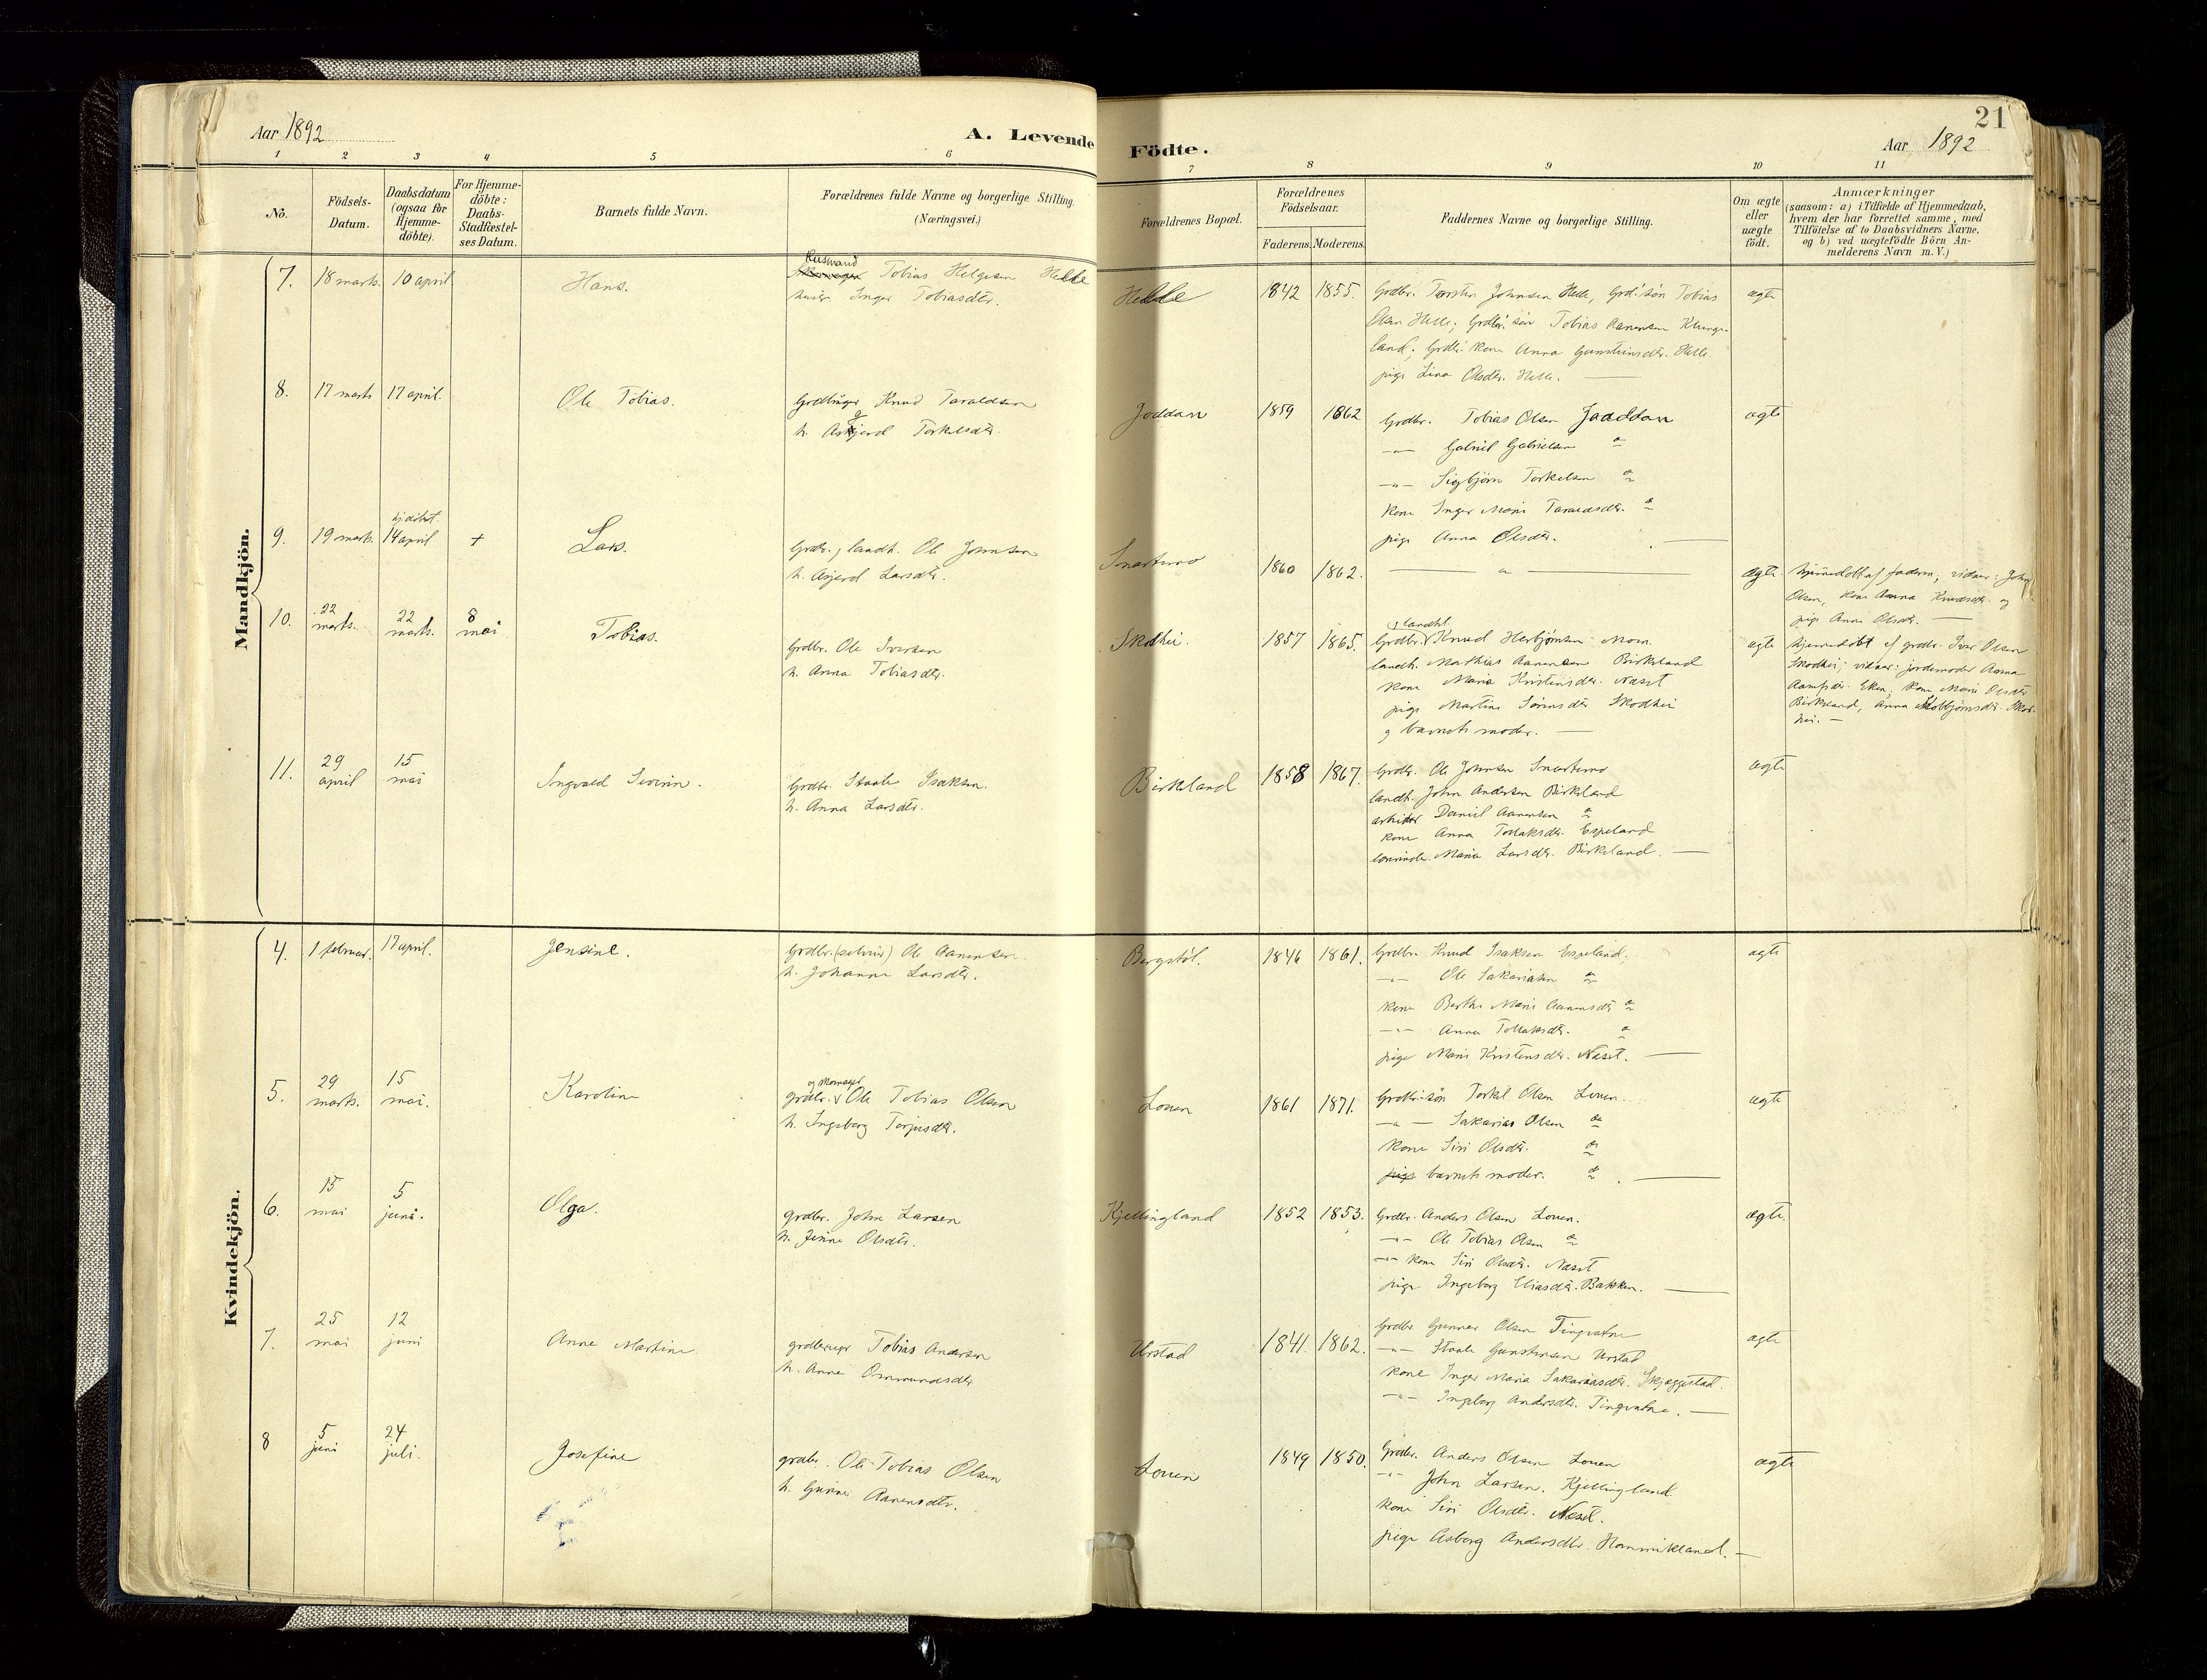 21
Aar 1892
A. Levende Födte.
Aar 1892
1 2 3 4 5 6 7 8 9 10 11
No.
Födsels-Datum.
Daabsdatum (ogsaa for Hjemme-döbte).
For Hjemme-döbte: Daabs-Stadfæstel-ses Datum.
Barnets fulde Navn.
Forældrenes fulde Navne og borgerlige Stilling.
(Næringsvei.)
Forældrenes Bopæl.
Forældrenes Födselsaar.
Faderens. Moderens.
Faddernes Navne og borgerlige Stilling.
Om ægte eller uægte födt.
Anmærkninger
(saasom: a) i Tilfælde af Hjemmedaab,
hvem der har forrettet samme, med
Tilföielse af to Daabsvidners Navne,
og b) ved uægtefödte Börn An-
melderens Navn m. V.)
Mandkjön.
7. 18 marts. 10 april Hans.
Husmand
Tobias Helgesen Helle
Inger Tobiasdtr.
Helle 1842 1855.
Grdbr. Torsten Johnsen Helle, Grdbr. søn Tobias
Olsen Helle; Grdbr. søn Tobias Aanensen Klunge-
land; Grdbr. kone Anna Gunsteinsdtr. Helle
pige Lina Olsdtr. Helle. —
ægte
8. 17 marts 17 april. Ole Tobias.
Grdbruger Knud Taraldsen
h. Torkelsdtr.
Joddan 1859 1862
Grdbr. Tobias Olsen Jaaddan
—"— Gabriel Gabrielsen "
—"— Sigbjørn Torkelsen "
kone Inger Marie Taraldsdtr. "
pige Anna Olsdtr. —
ægte
9. 19 marts. hj.døbt. 14 april + Lars.
Grdbr. og landh. Ole Johnsen
h. Asjerd Larsdtr.
Snartemo 1860 1862.
— " —
ægte
hjemmedøbt af faderen, vidner: John
Olsen, kone Anna Knudsdtr. og
pige Anne Olsdtr. —
10. 22 marts. 22 marts. 8 mai Tobias.
Grdbr. Ole Iversen
h. Anna Tobiasdtr.
Skodhei. 1857 1865.
og landhl.
Grdbr. Knud Herbjørnsen Mom
landh. Mathias Aanensen Birkeland
kone Maria Kristensdtr. Næset
pige Martine Sørinsdtr Skodhei
og barnets moder. —
ægte
hjemmedøbt af grdbr. Iver Olsen
Skodhei; vidner: jordemoder Anna
Eken, kone Marie Olsdtr
Birkeland, Anna
hei. —
11. 29 april 15 mai Ingvald Severin.
Grdbr. Staale Isaksen.
h. Anna Larsdtr.
Birkeland 1858 1867.
Grdbr. Ole Johnsen Snartemo
landh. John Andersen Birkeland
arbeider Daniel Aanensen "
kone Anna Tollaksdtr. Espeland
Maria Larsdtr. Birkeland. —
ægte
Kvindekjön.
4. 1 februar. 17 april. Jensine.
Grdbr. Ole Aanensen
h. Johanne Larsdtr.
Bergstøl. 1846 1861.
Grdbr. Knud Isaksen Espeland.
—"— Ole Sakariasen "
kone Berthe Marie Aanensdtr "
—"— Anna Tollaksdtr. "
pige Marie Kristensdtr. Næset. —
ægte
5. 29 marts. 15 mai. Karoline
og skomager
grdbr. Ole Tobias Olsen
h. Ingeborg Torjusdtr.
Louen 1861 1871.
Grdbr. søn Torkel Olsen Louen.
—"— Sakarias Olsen "
kone Siri Olsdtr. "
pige barnets moder. " . —
ægte
6. 15 mai 5 juni. Olga.
grdbr. John Larsen
h. Olsdtr.
Kjellingland 1852 1853.
Grdbr. Anders Olsen Louen.
—"— Ole Tobias Olsen "
—"— kone Siri Olsdtr. Næset
pige Ingeborg Eliasdtr. Bakken. —
ægte.
7. 25 mai 12 juni Anne Martine
grdbruger Tobias Andersen
h. Anne Ommundsdtr
Urstad 1841. 1862.
Grdbr. Gunnar Olsen Tingvatne
—"— Staale Gunstensen Urstad
kone Inger Maria Sakariasdtr. Skjeggestad.
—"— Ingeborg Andersdtr. Tingvatne. —
ægte
8 5 juni 24 juli. Josefine
grdbr. Ole Tobias Olsen
h. Aanensdtr.
Louen 1849 1850.
Grdbr. Anders Olsen Louen
—"— John Larsen. Kjellingland
kone Siri Olsdtr. Næset.
pige Asborg Andersdtr. Hommikland. —
ægte